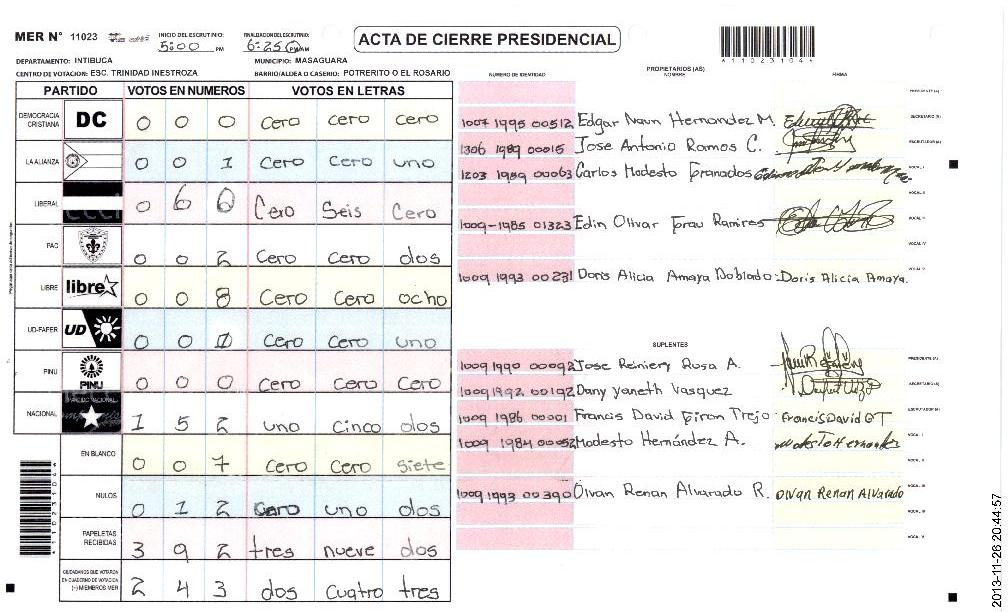 MER N° 11023
INICIO DEL ESCRUTINIO: 5:00 PM
FINALIZACION DEL ESCRUTINIO: 6:25 PM
ACTA DE CIERRE PRESIDENCIAL
4110231044
DEPARTAMENTO: INTIBUCA MUNICIPIO: MASAGUARA
CENTRO DE VOTACION: ESC. TRINIDAD INESTROZA BARRIO/ALDEA O CASERIO: POTRERITO O EL ROSARIO
PARTIDO VOTOS EN NUMEROS VOTOS EN LETRAS
DEMOCRACIA CRISTIANA DC 0 0 0 cero cero cero
LA ALIANZA 0 0 1 cero cero uno
LIBERAL 0 6 0 Cero Seis Cero
PAC 0 0 2 Cero Cero dos
LIBRE libre 0 0 8 Cero Cero ocho
UD-FAFER UD 0 0 1 Cero Cero uno
PINU PINU 0 0 0 Cero Cero Cero
NACIONAL PARTIDO NACIONAL 1 5 2 uno Cinco dos
EN BLANCO 0 0 7 Cero Cero Siete
NULOS 0 1 2 Cero uno dos
PAPELETAS RECIBIDAS 3 9 2 tres nueve dos
CIUDADANOS QUE VOTARON EN CUADERNO DE VOTACION (+) MIEMBROS MER 2 4 3 dos Cuatro tres
PROPIETARIOS (AS)
NUMERO DE IDENTIDAD NOMBRE FIRMA
PRESIDENTE (A)
1007 1995 00512 Edgar Naun Hernandez M. SECRETARIO (A)
1306 1989 00015 Jose Antonio Ramos C. ESCRUTADOR (A)
1203 1989 00063 Carlos Modesto Granados VOCAL I
VOCAL II
1009-1985 01323 Edin Olivar Ramires VOCAL III
VOCAL IV
1009 1993 00231 Doris Alicia Amaya Boblado Doris Alicia Amaya. VOCAL V
SUPLENTES
1009 1990 00092 Jose Reiniery Rosa A. PRESIDENTE (A)
1009 1992 00192 Dany Yaneth Vasquez SECRETARIO (A)
1009 1986 00001 Francis David Giron Trejo Francis David GT ESCRUTADOR (A)
1009 1984 00052 Modesto Hernández A. Modesto Hernandez VOCAL I
VOCAL II
1009 1993 00390 Olvan Renan Alvarado R. Olvan Renan Alvarado VOCAL III
VOCAL IV
VOCAL V
2013-11-26 20:44:57